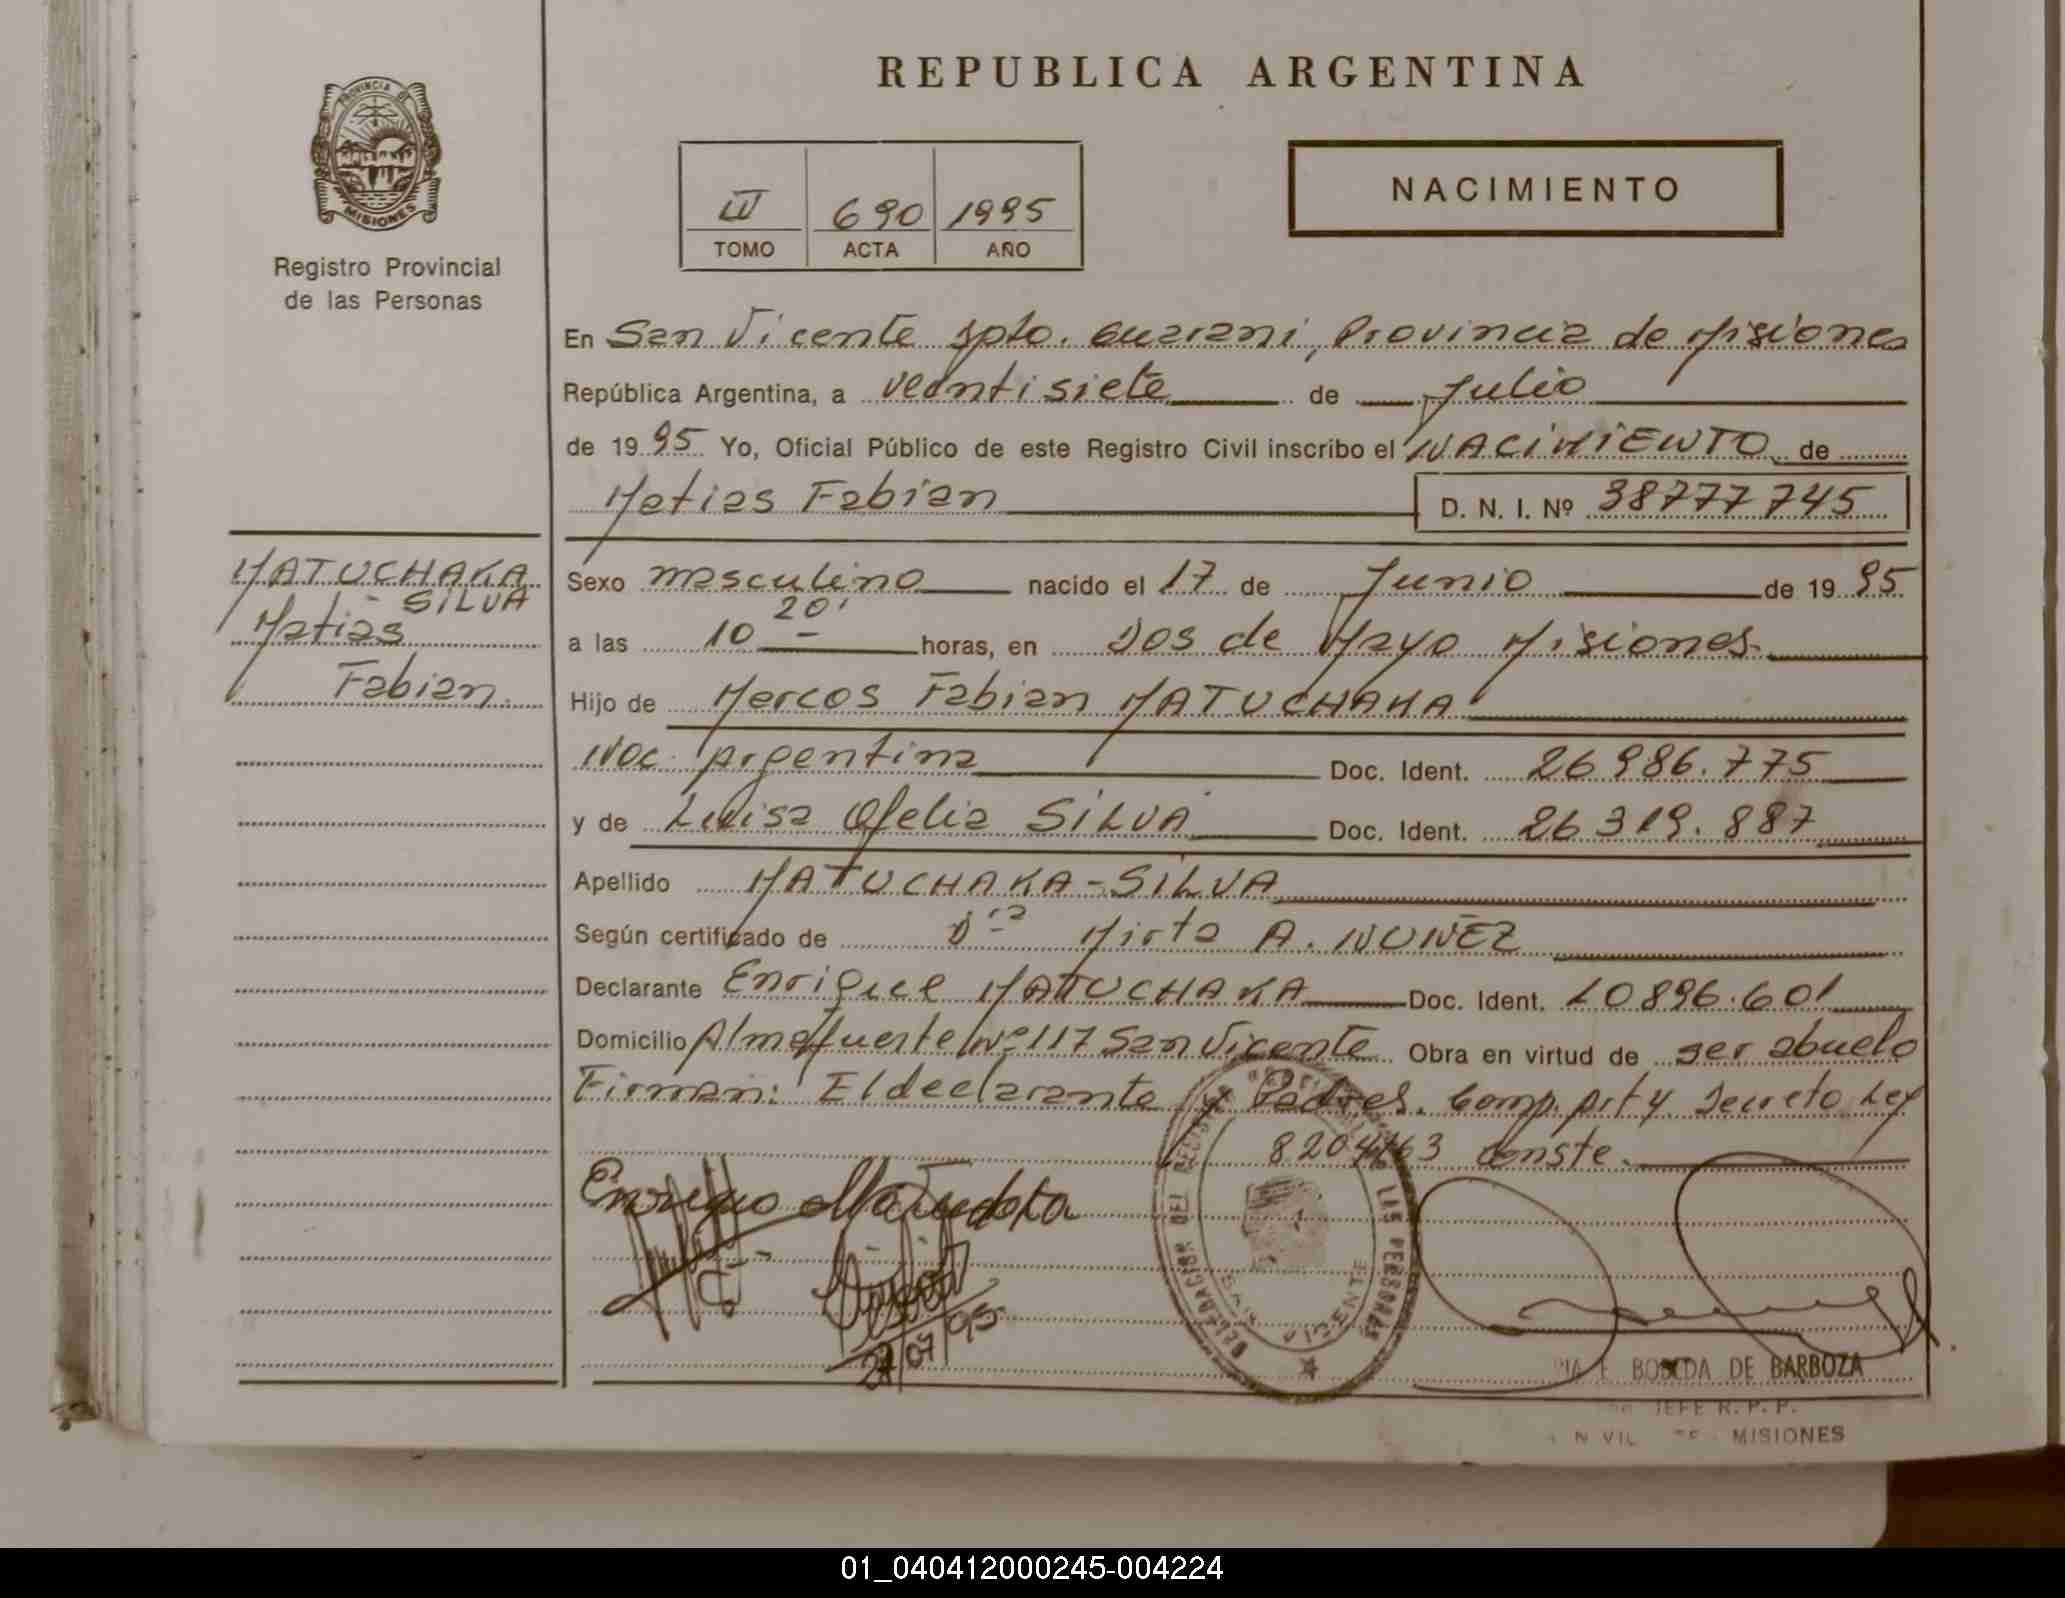 PROVINCIA DE
MISIONES
Registro Provincial
de las Personas
REPUBLICA ARGENTINA
NACIMIENTO
IV 690 1995
TOMO ACTA AÑO
En San Vicente Dpto. Guarani, Provincia de Misiones
República Argentina, a veinti siete de Julio
de 1995 Yo, Oficial Público de este Registro Civil inscribo el NACIMIENTO de
Matias Fabian D. N. I. Nº 38777745
MATUCHAKA
SILVA
Matias
Fabian.
Sexo masculino nacido el 17 de Junio de 1995
a las 10 20' horas, en Dos de Mayo Misiones.
Hijo de Marcos Fabian MATUCHAKA
Nac. Argentina Doc. Ident. 26986.775
y de Luisa Ofelia SILVA Doc. Ident. 26319.887
Apellido MATUCHAKA-SILVA
Según certificado de Dra Mirta A. NUÑEZ
Declarante Enrique MATUCHAKA Doc. Ident. 10896.601
Domicilio Almafuerte Nº 117 San Vicente Obra en virtud de ser abuelo
Firman: El declarante y Padres. Comp. art y Decreto Ley
8204/63 Conste.
Enrique Matuchaka
07/95
DELEGACION DEL REGISTRO PROVINCIAL DE LAS PERSONAS
SAN VICENTE
DE BARBOZA
JEFE R. P. P.
MISIONES
01_040412000245-004224